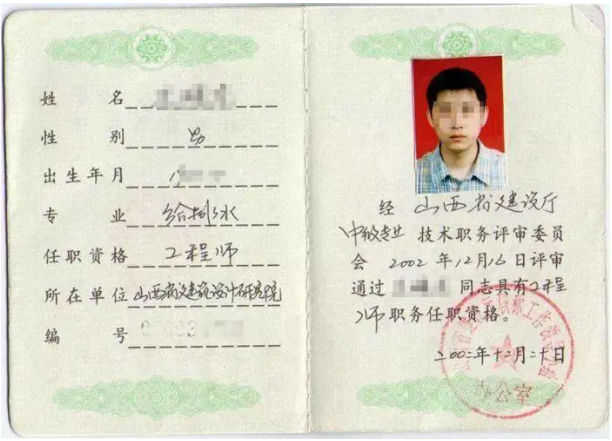 姓名
性别 男
出生年月 19
专业 给排水
任职资格 工程师
所在单位 山西省建筑设计研究院
编号
经 山西省建设厅
中级专业 技术职务评审委员
会 2002 年 12 月 16 日评审
通过 同志具有 工程
师 职务任职资格。
二00二年十二月二十日